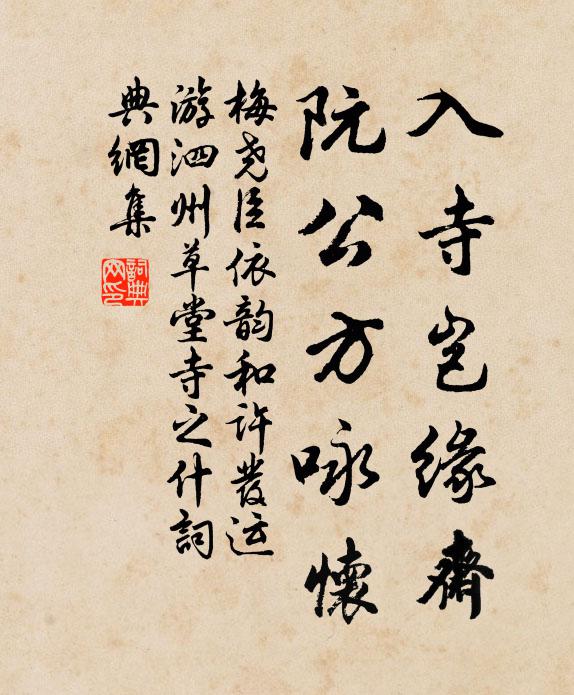 入寺岂缘斋
阮公方咏怀
梅尧臣依韵和许发运
游泗州草堂寺之什詞
典網集
詞典網印